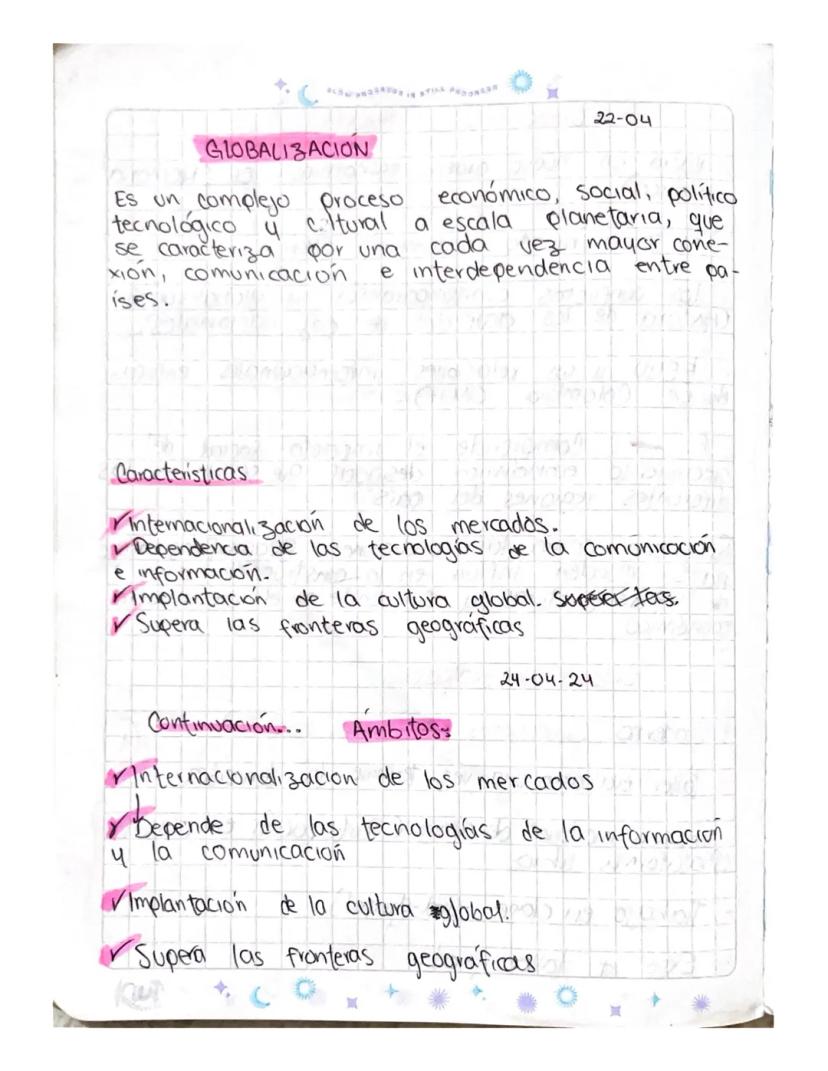 SLOW PROGRESS IS STILL PROGRESS
22-04
GLOBALIZACIÓN
Es un complejo proceso económico, social, político
tecnológico y cultural a escala planetaria, que
se caracteriza por una cada vez mayor cone-
xión, comunicación e interdependencia entre pa-
íses.
Características
✓Internacionalización de los mercados.
✓Dependencia de las tecnologías de la comunicación
e información.
✓Implantación de la cultura global.
✓Supera las fronteras geográficas
24-04-24
Continuación... Ámbitos:
✓Internacionalización de los mercados
✓Depende de las tecnologías de la información
y la comunicación
✓Implantación de la cultura global.
✓Supera las fronteras geográficas